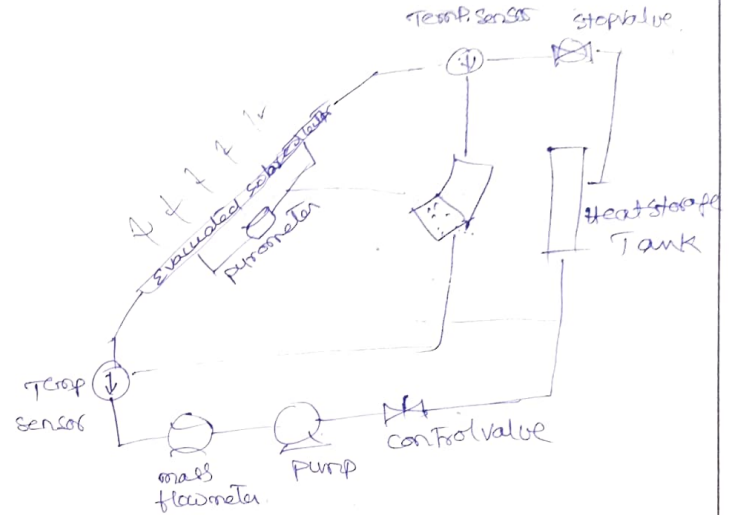 Temp. Sensor
Stopvalve
Evacuated solar collector
pyrometer
Heat storage
Tank
Temp
sensor
mass
flowmeter.
pump
control valve